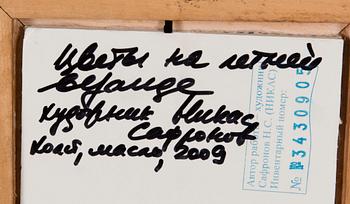 Цветы на летней
веранде
художник Никас
Сафронов
Холст, масло, 2009
Автор работы художник
Сафронов Н.С. (НИКАС)
Инвентарный номер:
№ 3430905